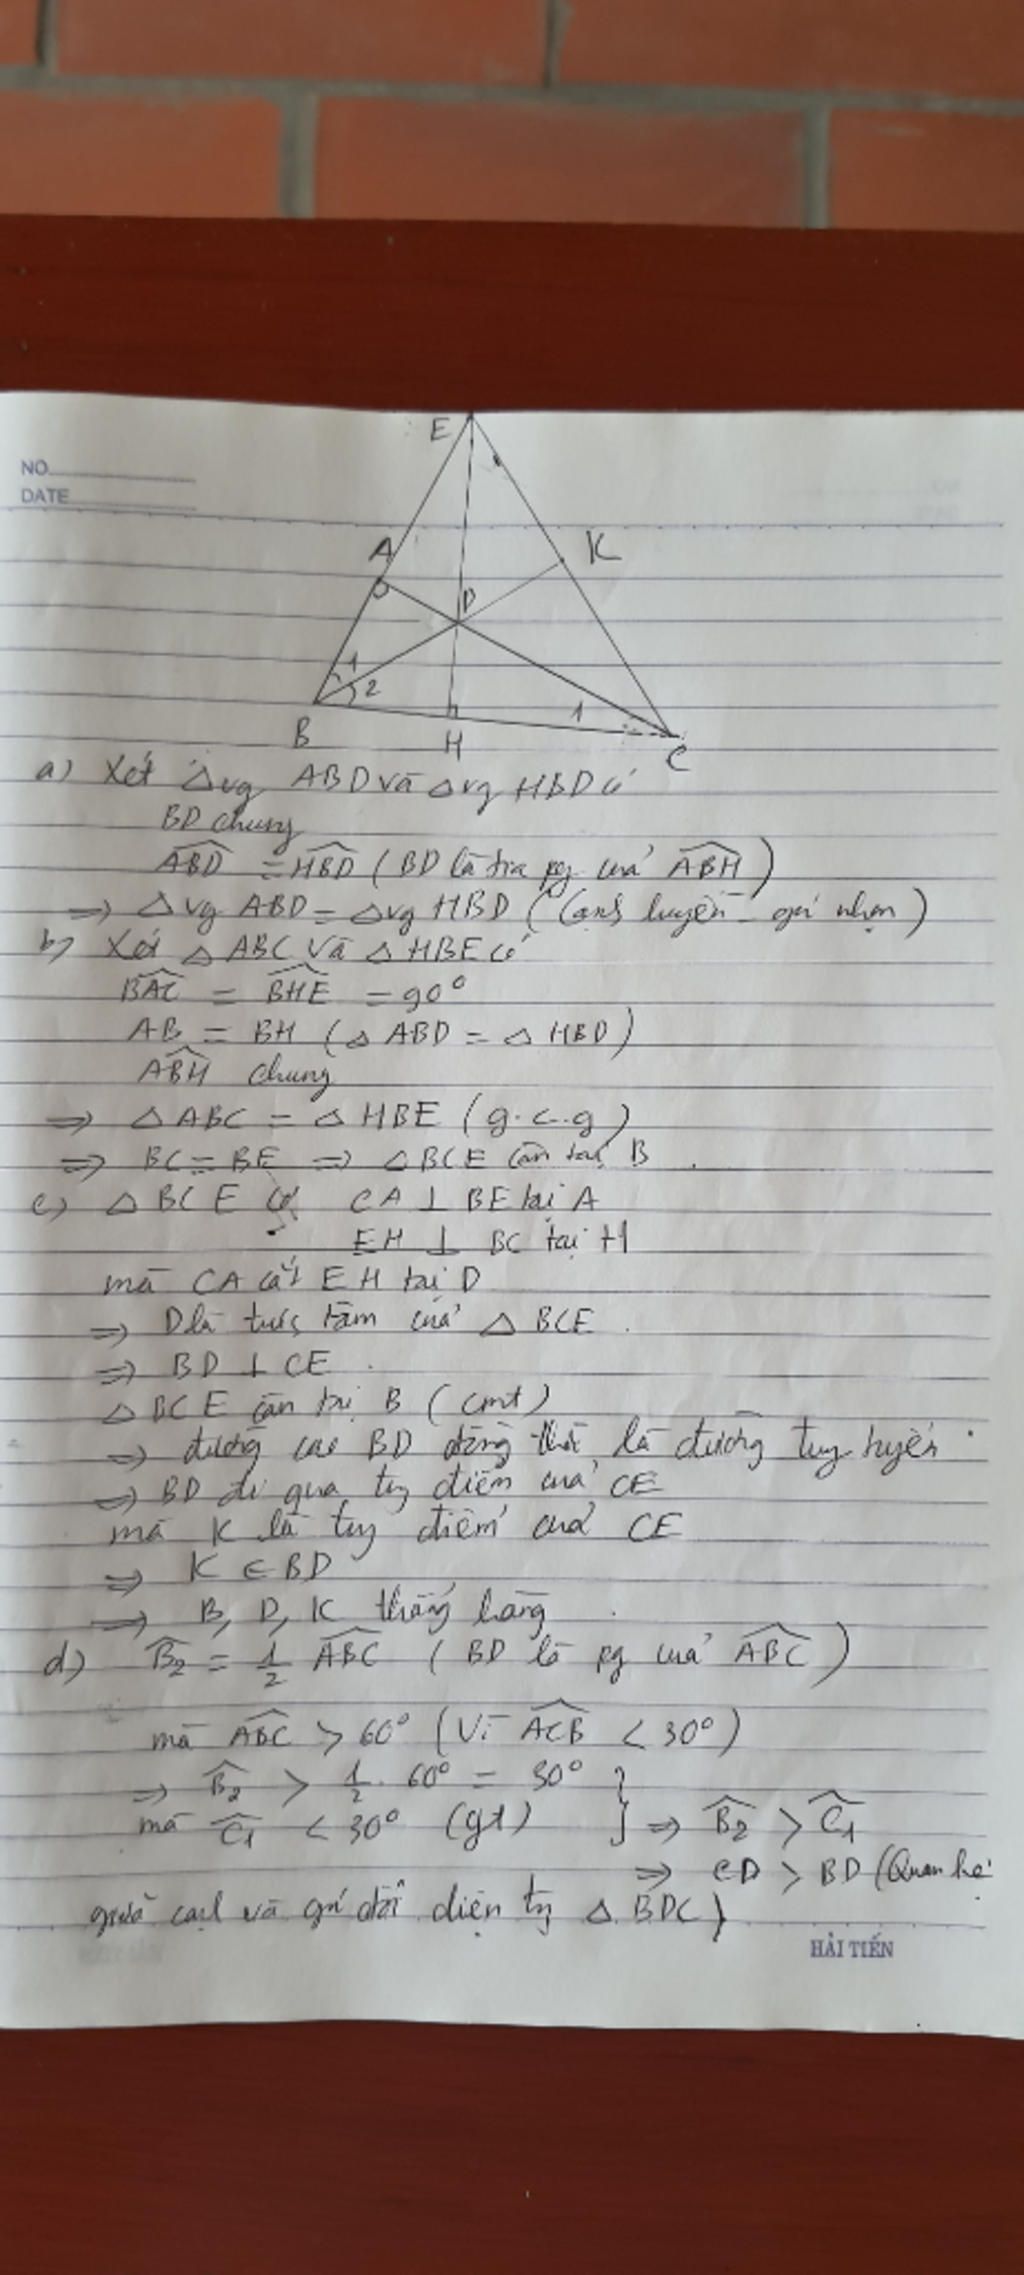 NO.
DATE
E
A
K
D
1
2
1
B
H
C
a) Xét △vg ABD và △vg HBD có
BD chung
ABD = HBD (BD là tia pg của ABH)
=> △vg ABD = △vg HBD (Cạnh huyền - góc nhọn)
b) Xét △ ABC và △ HBE có
BAC = BHE = 90°
AB = BH (△ ABD = △ HBD)
ABH chung
=> △ ABC = △ HBE (g.c.g)
=> BC = BE => △ BCE cân tại B
c) △ BCE có CA ⊥ BE tại A
EH ⊥ BC tại H
mà CA cắt EH tại D
=> D là trực tâm của △ BCE.
=> BD ⊥ CE.
△ BCE cân tại B (cmt)
=> đường cao BD đồng thời là đường tuyến
=> BD đi qua điểm của CE
mà K là điểm của CE
=> K ∈ BD
=> B, D, K thẳng hàng.
d) B2 = 1/2 ABC (BD là pg của ABC)
mà ABC > 60° (Vì ACB < 30°)
=> B2 > 1/2 . 60° = 30°
mà C1 < 30° (gt) } => B2 > C1
=> CD > BD (Quan hệ
giữa cạnh và góc đối diện △ BDC)
HẢI TIẾN